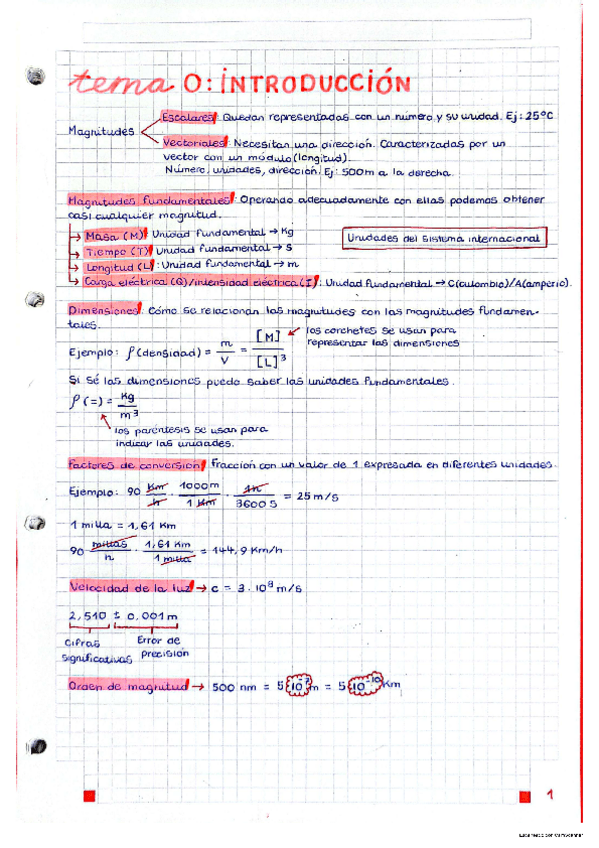 tema 0: INTRODUCCIÓN
Magnitudes
Escalares: Quedan representadas con un número y su unidad. Ej: 25ºC
Vectoriales: Necesitan una dirección. Caracterizadas por un
vector con un módulo (longitud).
Número, unidades, dirección. Ej: 500m a la derecha.
Magnitudes fundamentales: Operando adecuadamente con ellas podemos obtener
casi cualquier magnitud.
Masa (M): Unidad fundamental → Kg
Tiempo (T): Unidad fundamental → s
Longitud (L): Unidad fundamental → m
Unidades del sistema internacional
Carga eléctrica (Q)/intensidad eléctrica (I): Unidad fundamental → C(culombio)/A(amperio).
Dimensiones: Cómo se relacionan las magnitudes con las magnitudes fundamen-
tales.
Ejemplo: ρ(densidad) = m/V = [M]/[L]³
los corchetes se usan para
representar las dimensiones
Si sé las dimensiones puedo saber las unidades fundamentales.
ρ (=) = Kg/m³
los paréntesis se usan para
indicar las unidades.
Factores de conversión: Fracción con un valor de 1 expresada en diferentes unidades.
Ejemplo: 90 Km/h · 1000m/1 Km · 1h/3600 s = 25 m/s
1 milla = 1,61 Km
90 millas/h · 1,61 Km/1 milla = 144,9 Km/h
Velocidad de la luz → c = 3 · 10⁸ m/s
2,510 ± 0,001 m
Cifras significativas
Error de precisión
Orden de magnitud → 500 nm = 5·10⁻⁷ m = 5·10⁻¹⁰ Km
1